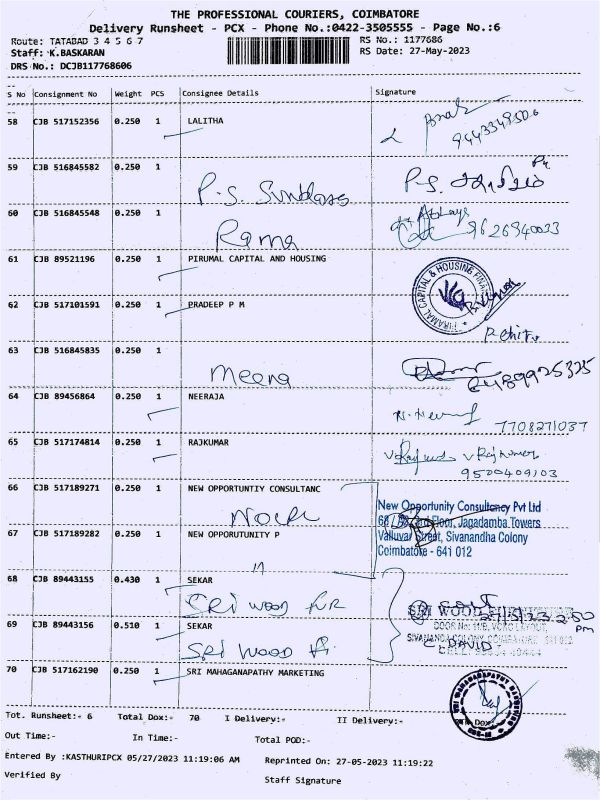 THE PROFESSIONAL COURIERS, COIMBATORE
Delivery Runsheet - PCX - Phone No.:0422-3505555 - Page No.:6
Route: TATABAD 3 4 5 6 7
RS No.: 1177686
Staff: K.BASKARAN
RS Date: 27-May-2023
DRS No.: DCJB117768606
S No Consignment No Weight PCS Consignee Details Signature
58 CJB 517152356 0.250 1 LALITHA
59 CJB 516845582 0.250 1
P.S.
P.S.
60 CJB 516845548 0.250 1
Rama
9626940023
61 CJB 89521196 0.250 1 PIRUMAL CAPITAL AND HOUSING
PIRAMAL CAPITAL & HOUSING FINANCE
62 CJB 517101591 0.250 1 PRADEEP P M
63 CJB 516845835 0.250 1
Meena
64 CJB 89456864 0.250 1 NEERAJA
7708271037
65 CJB 517174814 0.250 1 RAJKUMAR
9500409103
66 CJB 517189271 0.250 1 NEW OPPORTUNTIY CONSULTANC
New Opportunity Consultancy Pvt Ltd
3rd Floor, Jagadamba Towers
67 CJB 517189282 0.250 1 NEW OPPORUTUNITY P
Valluvar Street, Sivanandha Colony
Coimbatore - 641 012
68 CJB 89443155 0.430 1 SEKAR
SRI WOOD FUR
SRI WOOD
69 CJB 89443156 0.510 1 SEKAR
SRI WOOD
DAVID
70 CJB 517162190 0.250 1 SRI MAHAGANAPATHY MARKETING
SRI MAHAGANAPATHY MARKETING
Tot. Runsheet:- 6 Total Dox:- 70 I Delivery:- II Delivery:-
Out Time:- In Time:- Total POD:-
Entered By :KASTHURIPCX 05/27/2023 11:19:06 AM Reprinted On: 27-05-2023 11:19:22
Verified By Staff Signature